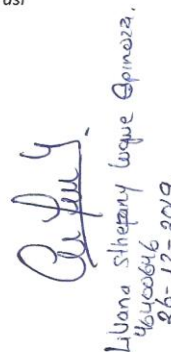 así
Liliana Sthefany Luque Espinoza.
46400646
26-12-2019